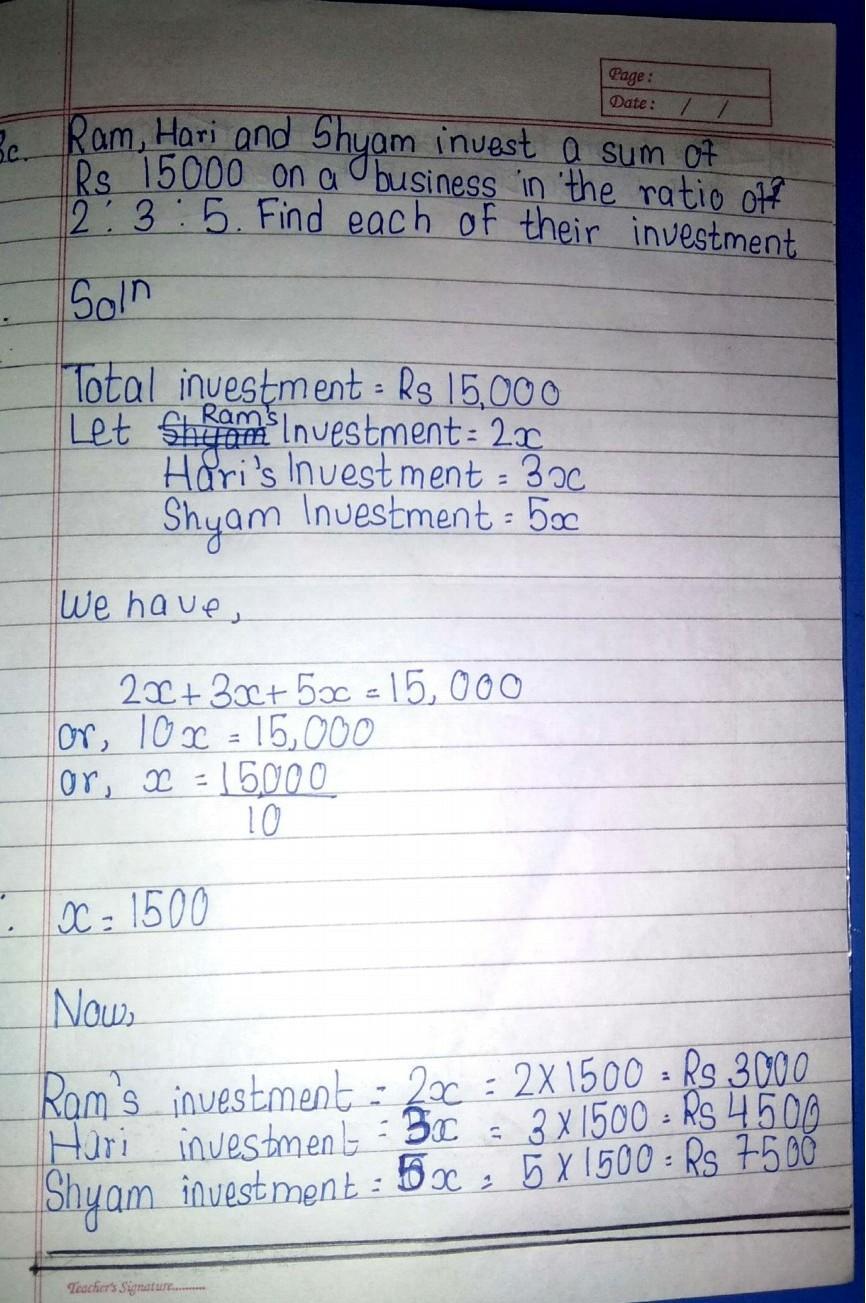 Page :
Date : / /
3c. Ram, Hari and Shyam invest a sum of
Rs 15000 on a business in the ratio off
2 : 3 : 5. Find each of their investment
Soln
Total investment = Rs 15,000
Let Shyam Ram's Investment = 2x
Hari's Investment = 3x
Shyam Investment = 5x
We have,
2x + 3x + 5x = 15,000
or, 10x = 15,000
or, x = 15,000
10
x = 1500
Now,
Ram's investment = 2x = 2 X 1500 = Rs 3000
Hari investment = 3x = 3 X 1500 = Rs 4500
Shyam investment = 5x = 5 X 1500 = Rs 7500
Teacher's Signature..........